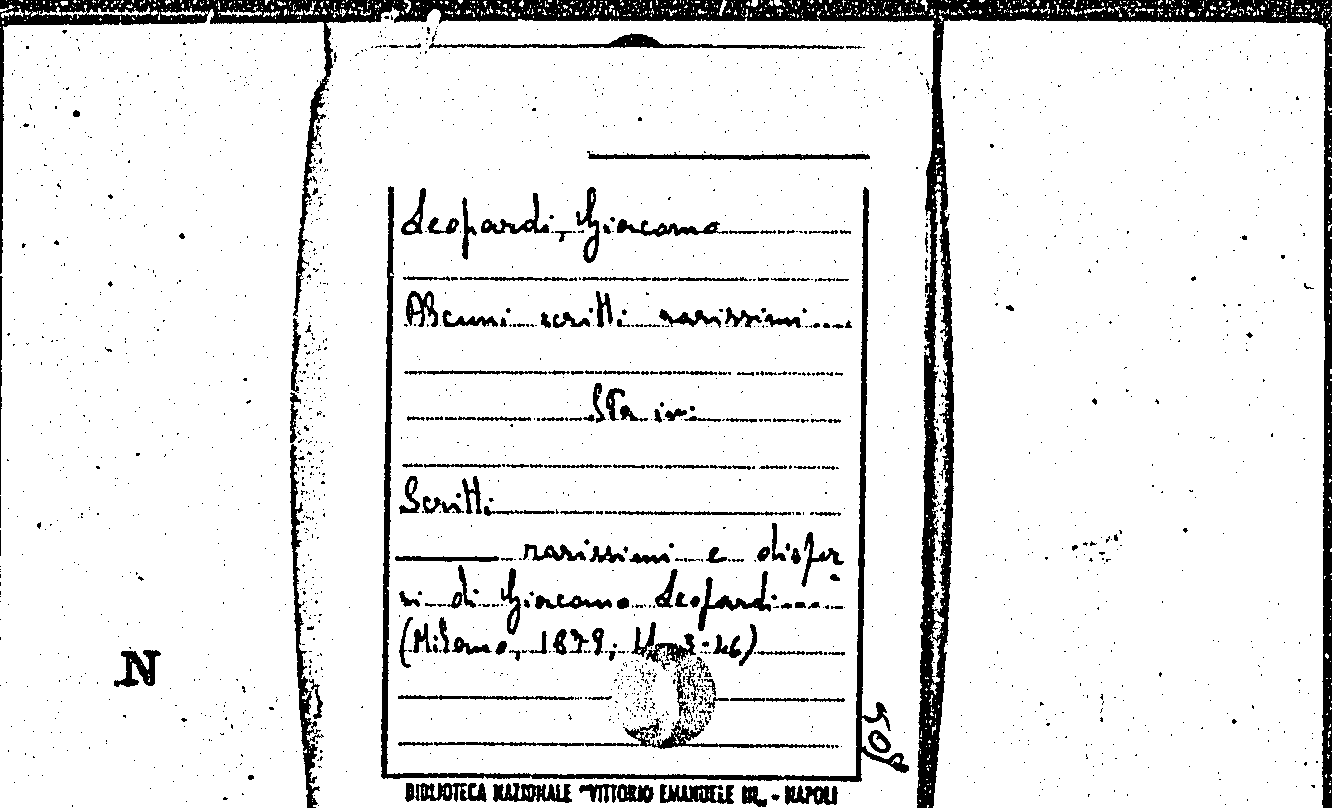 Leopardi, Giacomo
Alcuni scritti rarissimi....
Sta in:
Scritti
rarissimi e disper
si di Giacomo Leopardi....
(Milano, 1879; 3-46)
BIBLIOTECA NAZIONALE "VITTORIO EMANUELE III„ - NAPOLI
N